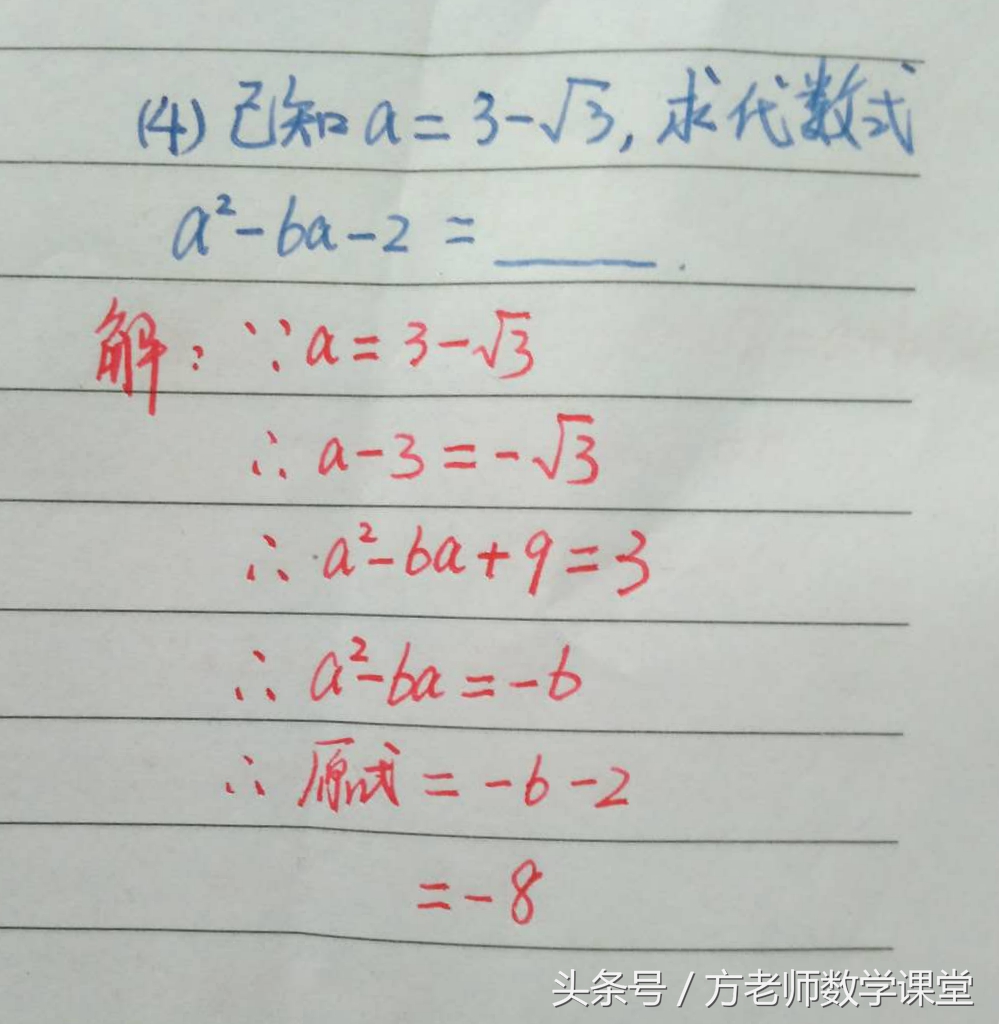 (4) 已知 a = 3-√3, 求代数式
a²-6a-2 = ______.
解: ∵ a = 3-√3
∴ a-3 = -√3
∴ a²-6a+9 = 3
∴ a²-6a = -6
∴ 原式 = -6-2
= -8
头条号 / 方老师数学课堂